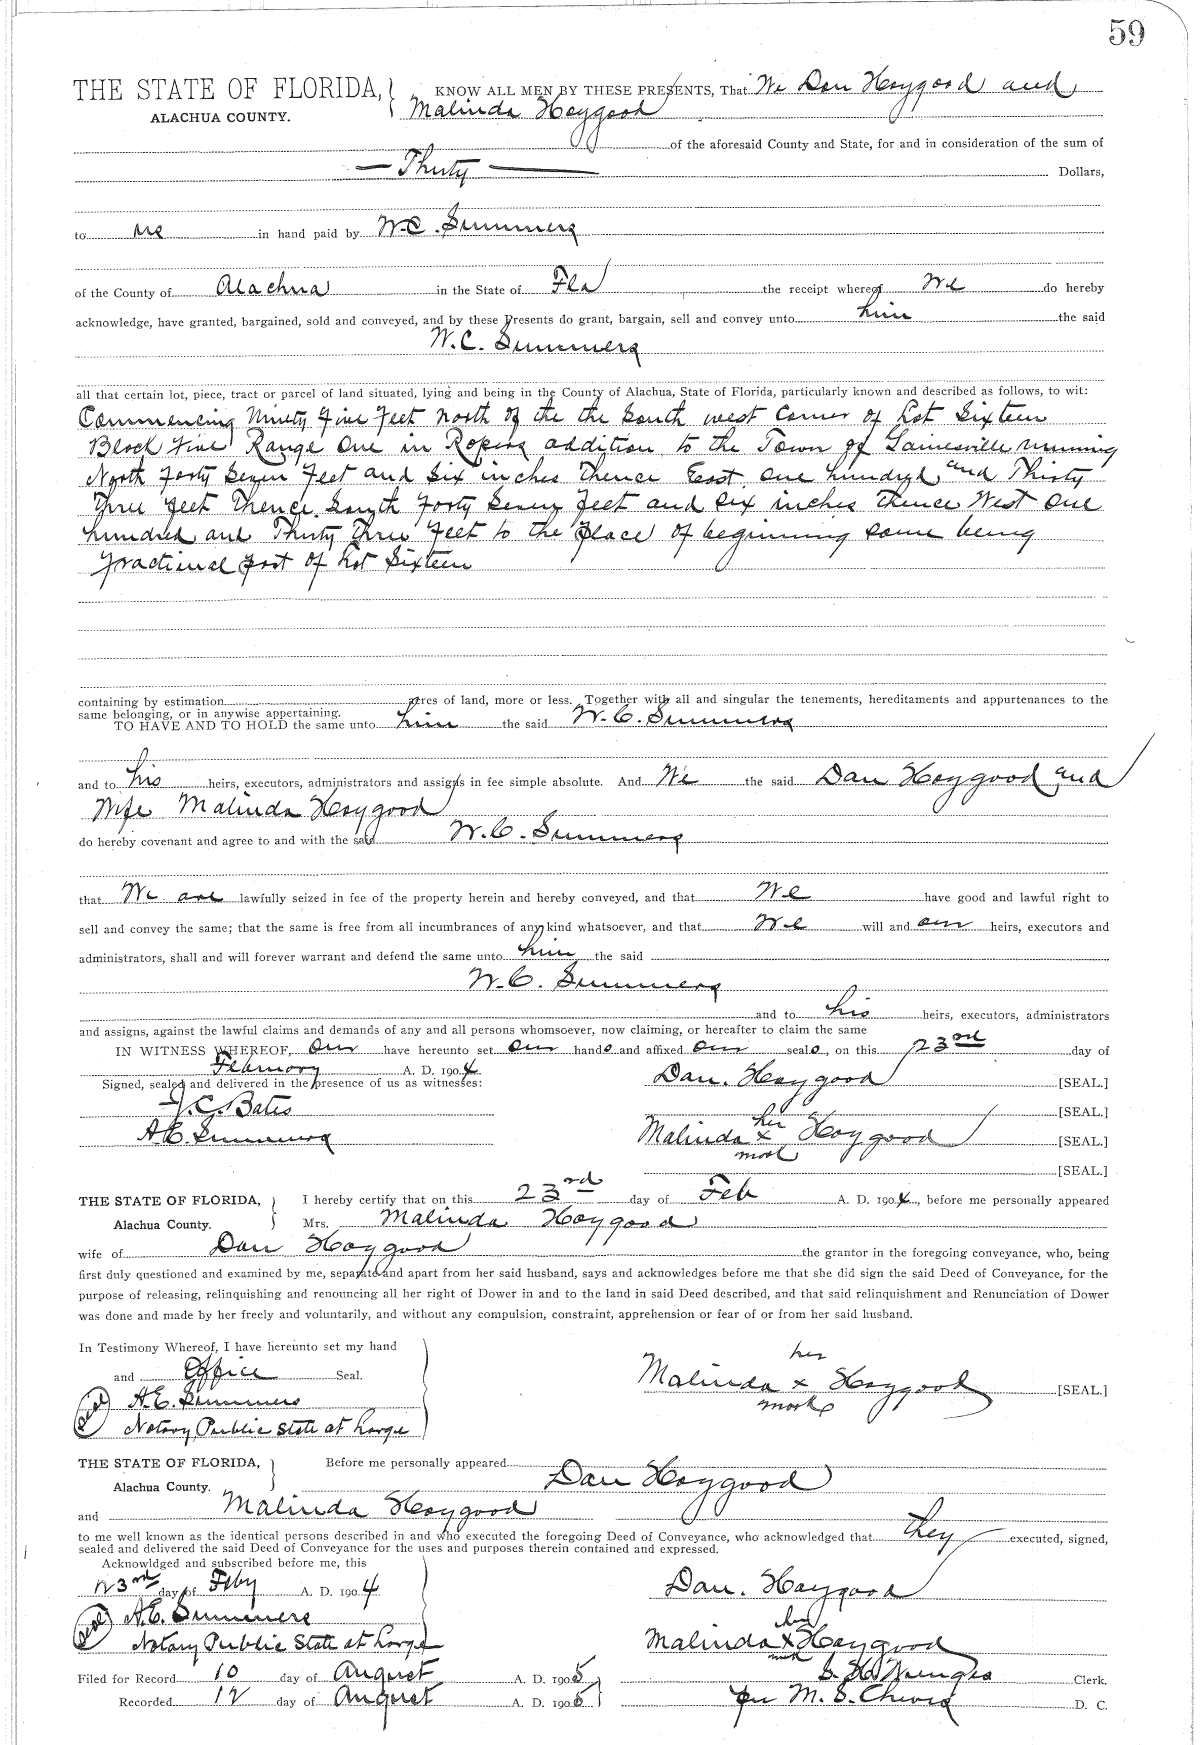 59
THE STATE OF FLORIDA, KNOW ALL MEN BY THESE PRESENTS, That We Dan Haygood and
ALACHUA COUNTY. Malinda Haygood
of the aforesaid County and State, for and in consideration of the sum of
— Thirty — Dollars,
to us in hand paid by W.C. Summers
of the County of Alachua in the State of Fla the receipt whereof We do hereby
acknowledge, have granted, bargained, sold and conveyed, and by these Presents do grant, bargain, sell and convey unto him the said
W.C. Summers
all that certain lot, piece, tract or parcel of land situated, lying and being in the County of Alachua, State of Florida, particularly known and described as follows, to wit:
Commencing Ninety Five Feet North of the the South west Corner of Lot Sixteen
Block Five Range One in Ropers addition to the Town of Gainesville running
North Forty Seven Feet and Six inches thence East one hundred and Thirty
three feet thence South Forty Seven feet and six inches thence West one
hundred and Thirty three feet to the place of beginning same being
fractional part of Lot Sixteen
containing by estimation acres of land, more or less. Together with all and singular the tenements, hereditaments and appurtenances to the
same belonging, or in anywise appertaining.
TO HAVE AND TO HOLD the same unto him the said W.C. Summers
and to his heirs, executors, administrators and assigns in fee simple absolute. And We the said Dan Haygood and
Wife Malinda Haygood
do hereby covenant and agree to and with the said W.C. Summers
that We are lawfully seized in fee of the property herein and hereby conveyed, and that We have good and lawful right to
sell and convey the same; that the same is free from all incumbrances of any kind whatsoever, and that We will and our heirs, executors and
administrators, shall and will forever warrant and defend the same unto him the said
W.C. Summers
and to his heirs, executors, administrators
and assigns, against the lawful claims and demands of any and all persons whomsoever, now claiming, or hereafter to claim the same
IN WITNESS WHEREOF, our have hereunto set our hands and affixed our seals, on this 23rd day of
February A. D. 1904. Dan. Haygood [SEAL.]
Signed, sealed and delivered in the presence of us as witnesses:
J.C. Bates [SEAL.]
A.E. Summers Malinda her x mark Haygood [SEAL.]
[SEAL.]
THE STATE OF FLORIDA, I hereby certify that on this 23rd day of Feb A. D. 1904, before me personally appeared
Alachua County. Mrs. Malinda Haygood
wife of Dan Haygood the grantor in the foregoing conveyance, who, being
first duly questioned and examined by me, separate and apart from her said husband, says and acknowledges before me that she did sign the said Deed of Conveyance, for the
purpose of releasing, relinquishing and renouncing all her right of Dower in and to the land in said Deed described, and that said relinquishment and Renunciation of Dower
was done and made by her freely and voluntarily, and without any compulsion, constraint, apprehension or fear of or from her said husband.
In Testimony Whereof, I have hereunto set my hand
and Office Seal. Malinda her x mark Haygood [SEAL.]
Seal A.E. Summers
Notary Public State at Large
THE STATE OF FLORIDA, Before me personally appeared Dan Haygood
Alachua County.
and Malinda Haygood
to me well known as the identical persons described in and who executed the foregoing Deed of Conveyance, who acknowledged that they executed, signed,
sealed and delivered the said Deed of Conveyance for the uses and purposes therein contained and expressed.
Acknowldged and subscribed before me, this
23rd day of Feby A. D. 1904 Dan. Haygood
Seal A.E. Summers
Notary Public State at Large Malinda her x mark Haygood
Filed for Record 10 day of August A. D. 1905 S. H. Wienges Clerk.
Recorded 12 day of August A. D. 1905 per M. S. D. C.